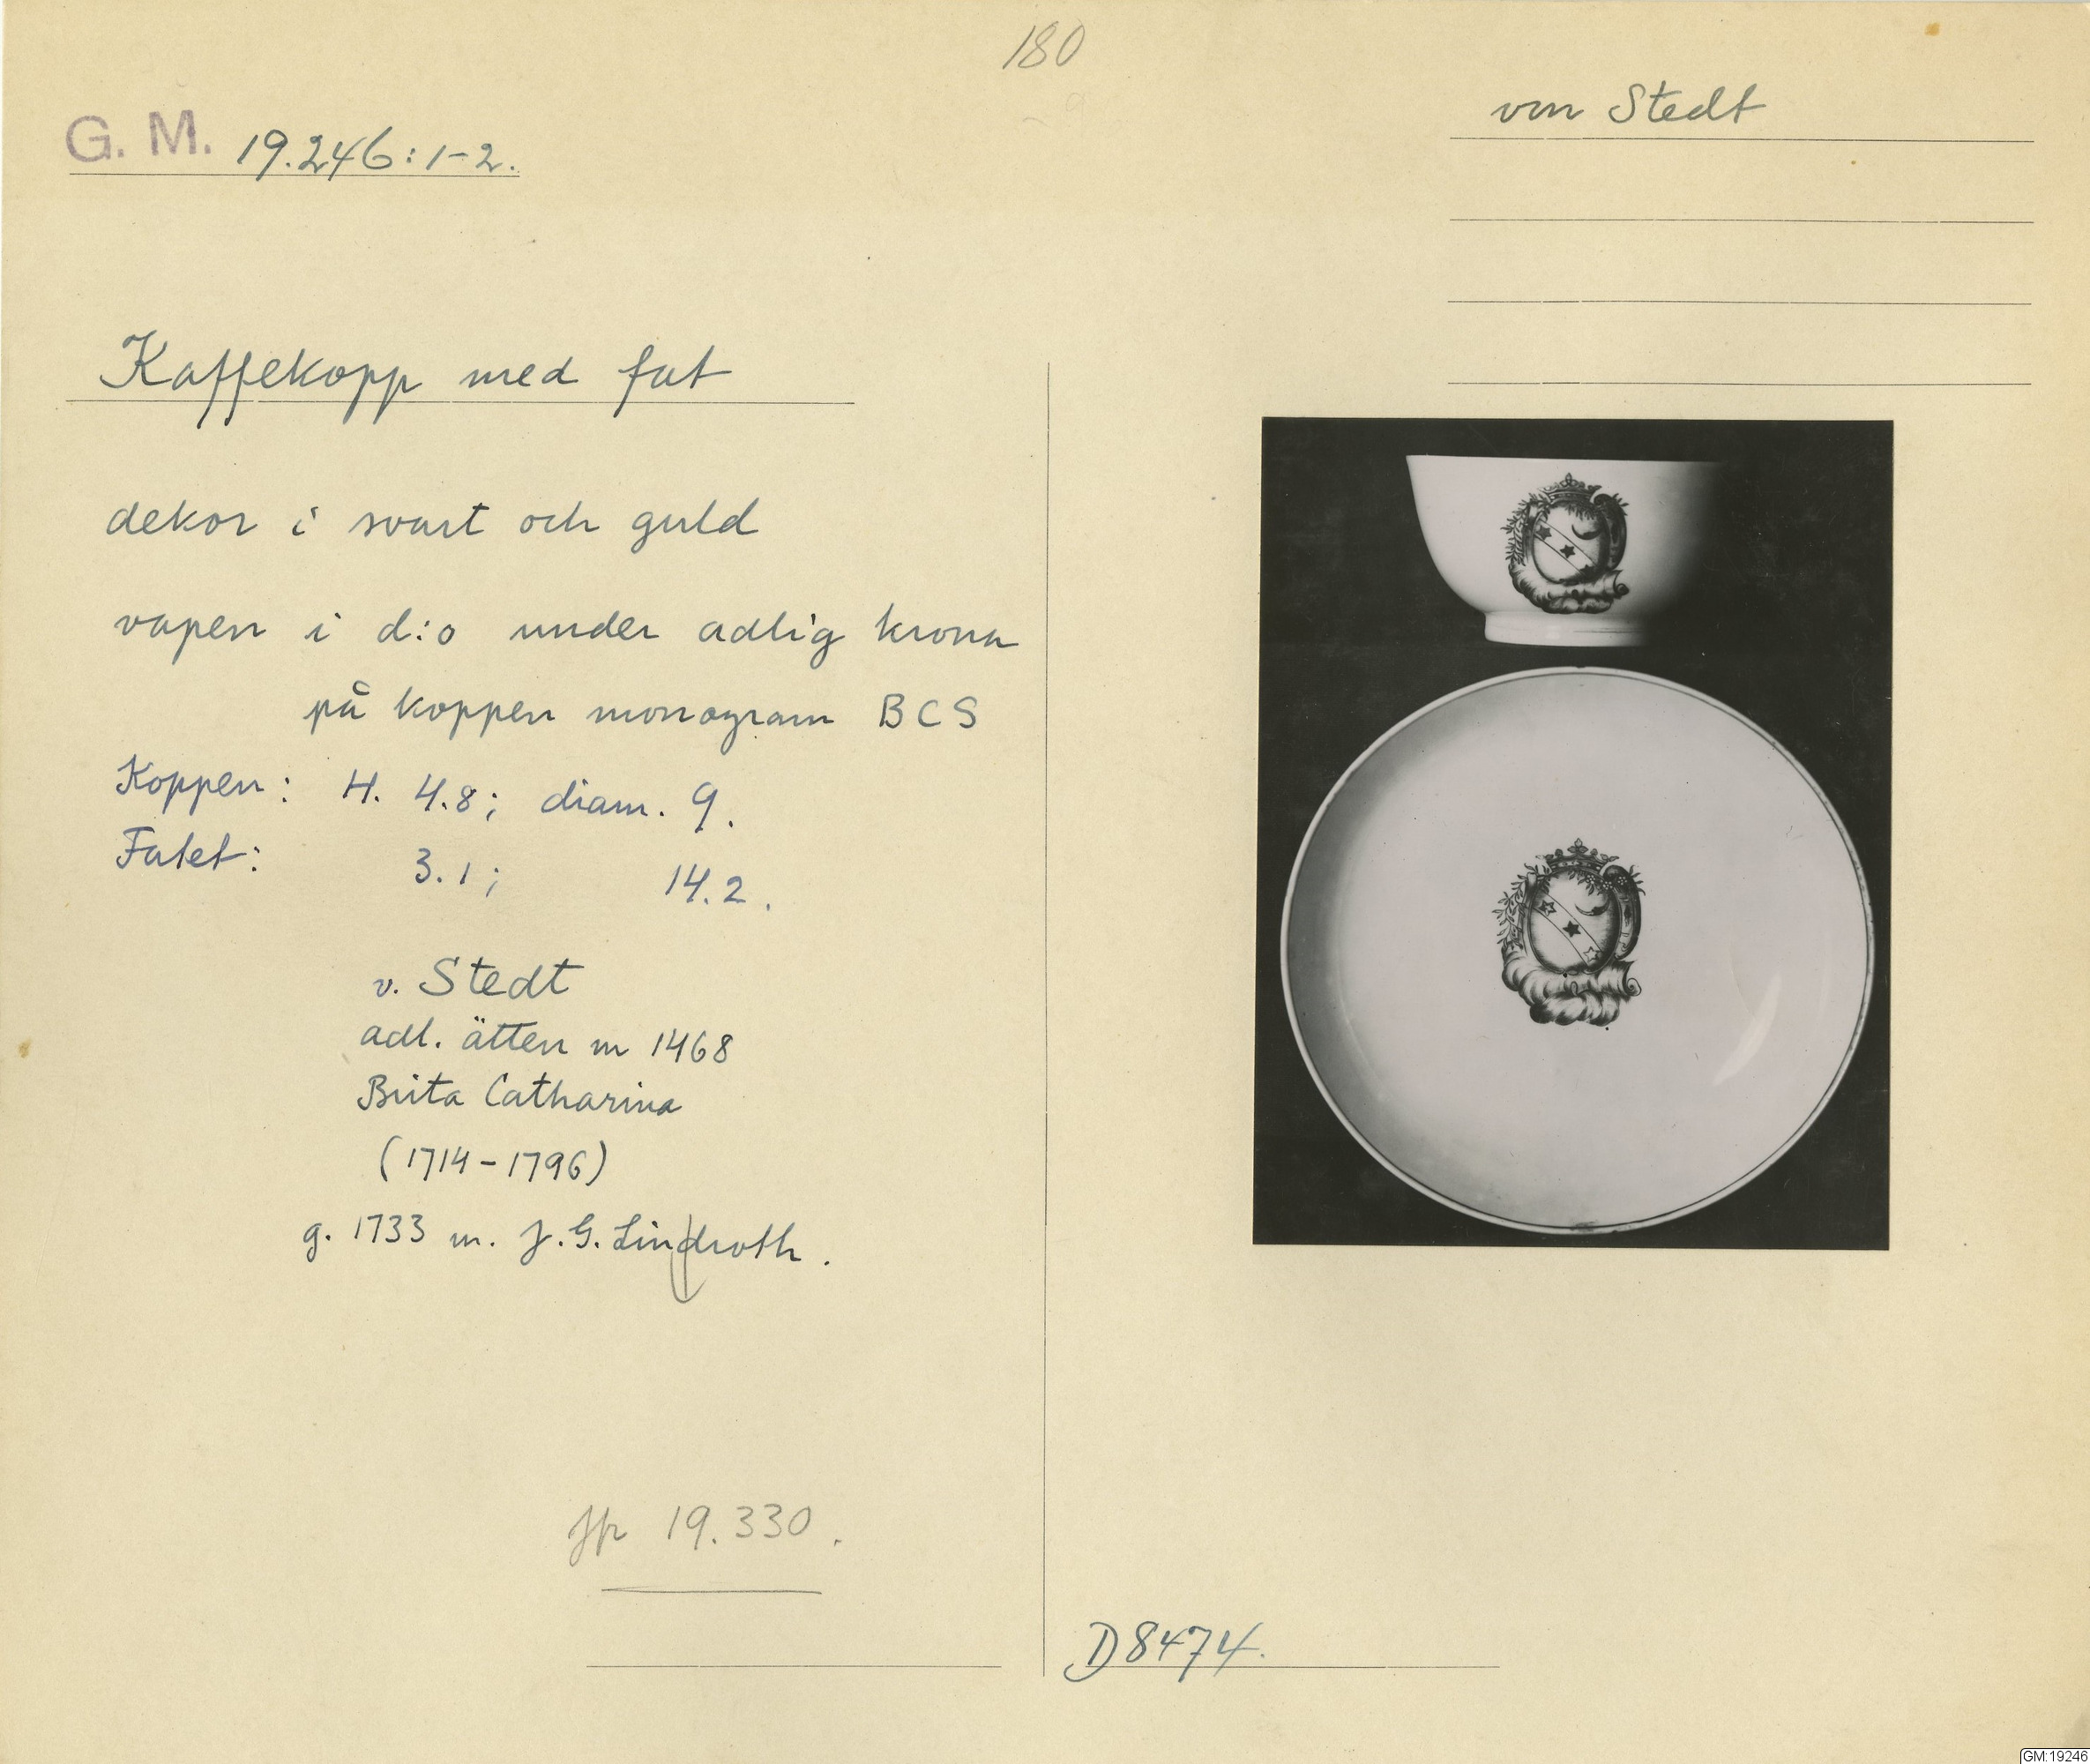 180
von Stedt
G. M. 19.246:1-2.
Kaffekopp med fat
dekor i svart och guld
vapen i d:o under adlig krona
på koppen monogram BCS
Koppen: H. 4.8; diam. 9.
Fatet: 3.1; 14.2.
v. Stedt
adl. ätten nr 1468
Brita Catharina
(1714-1796)
g. 1733 m. J.G. Lindroth.
Jfr 19.330.
D8474.
GM:19246